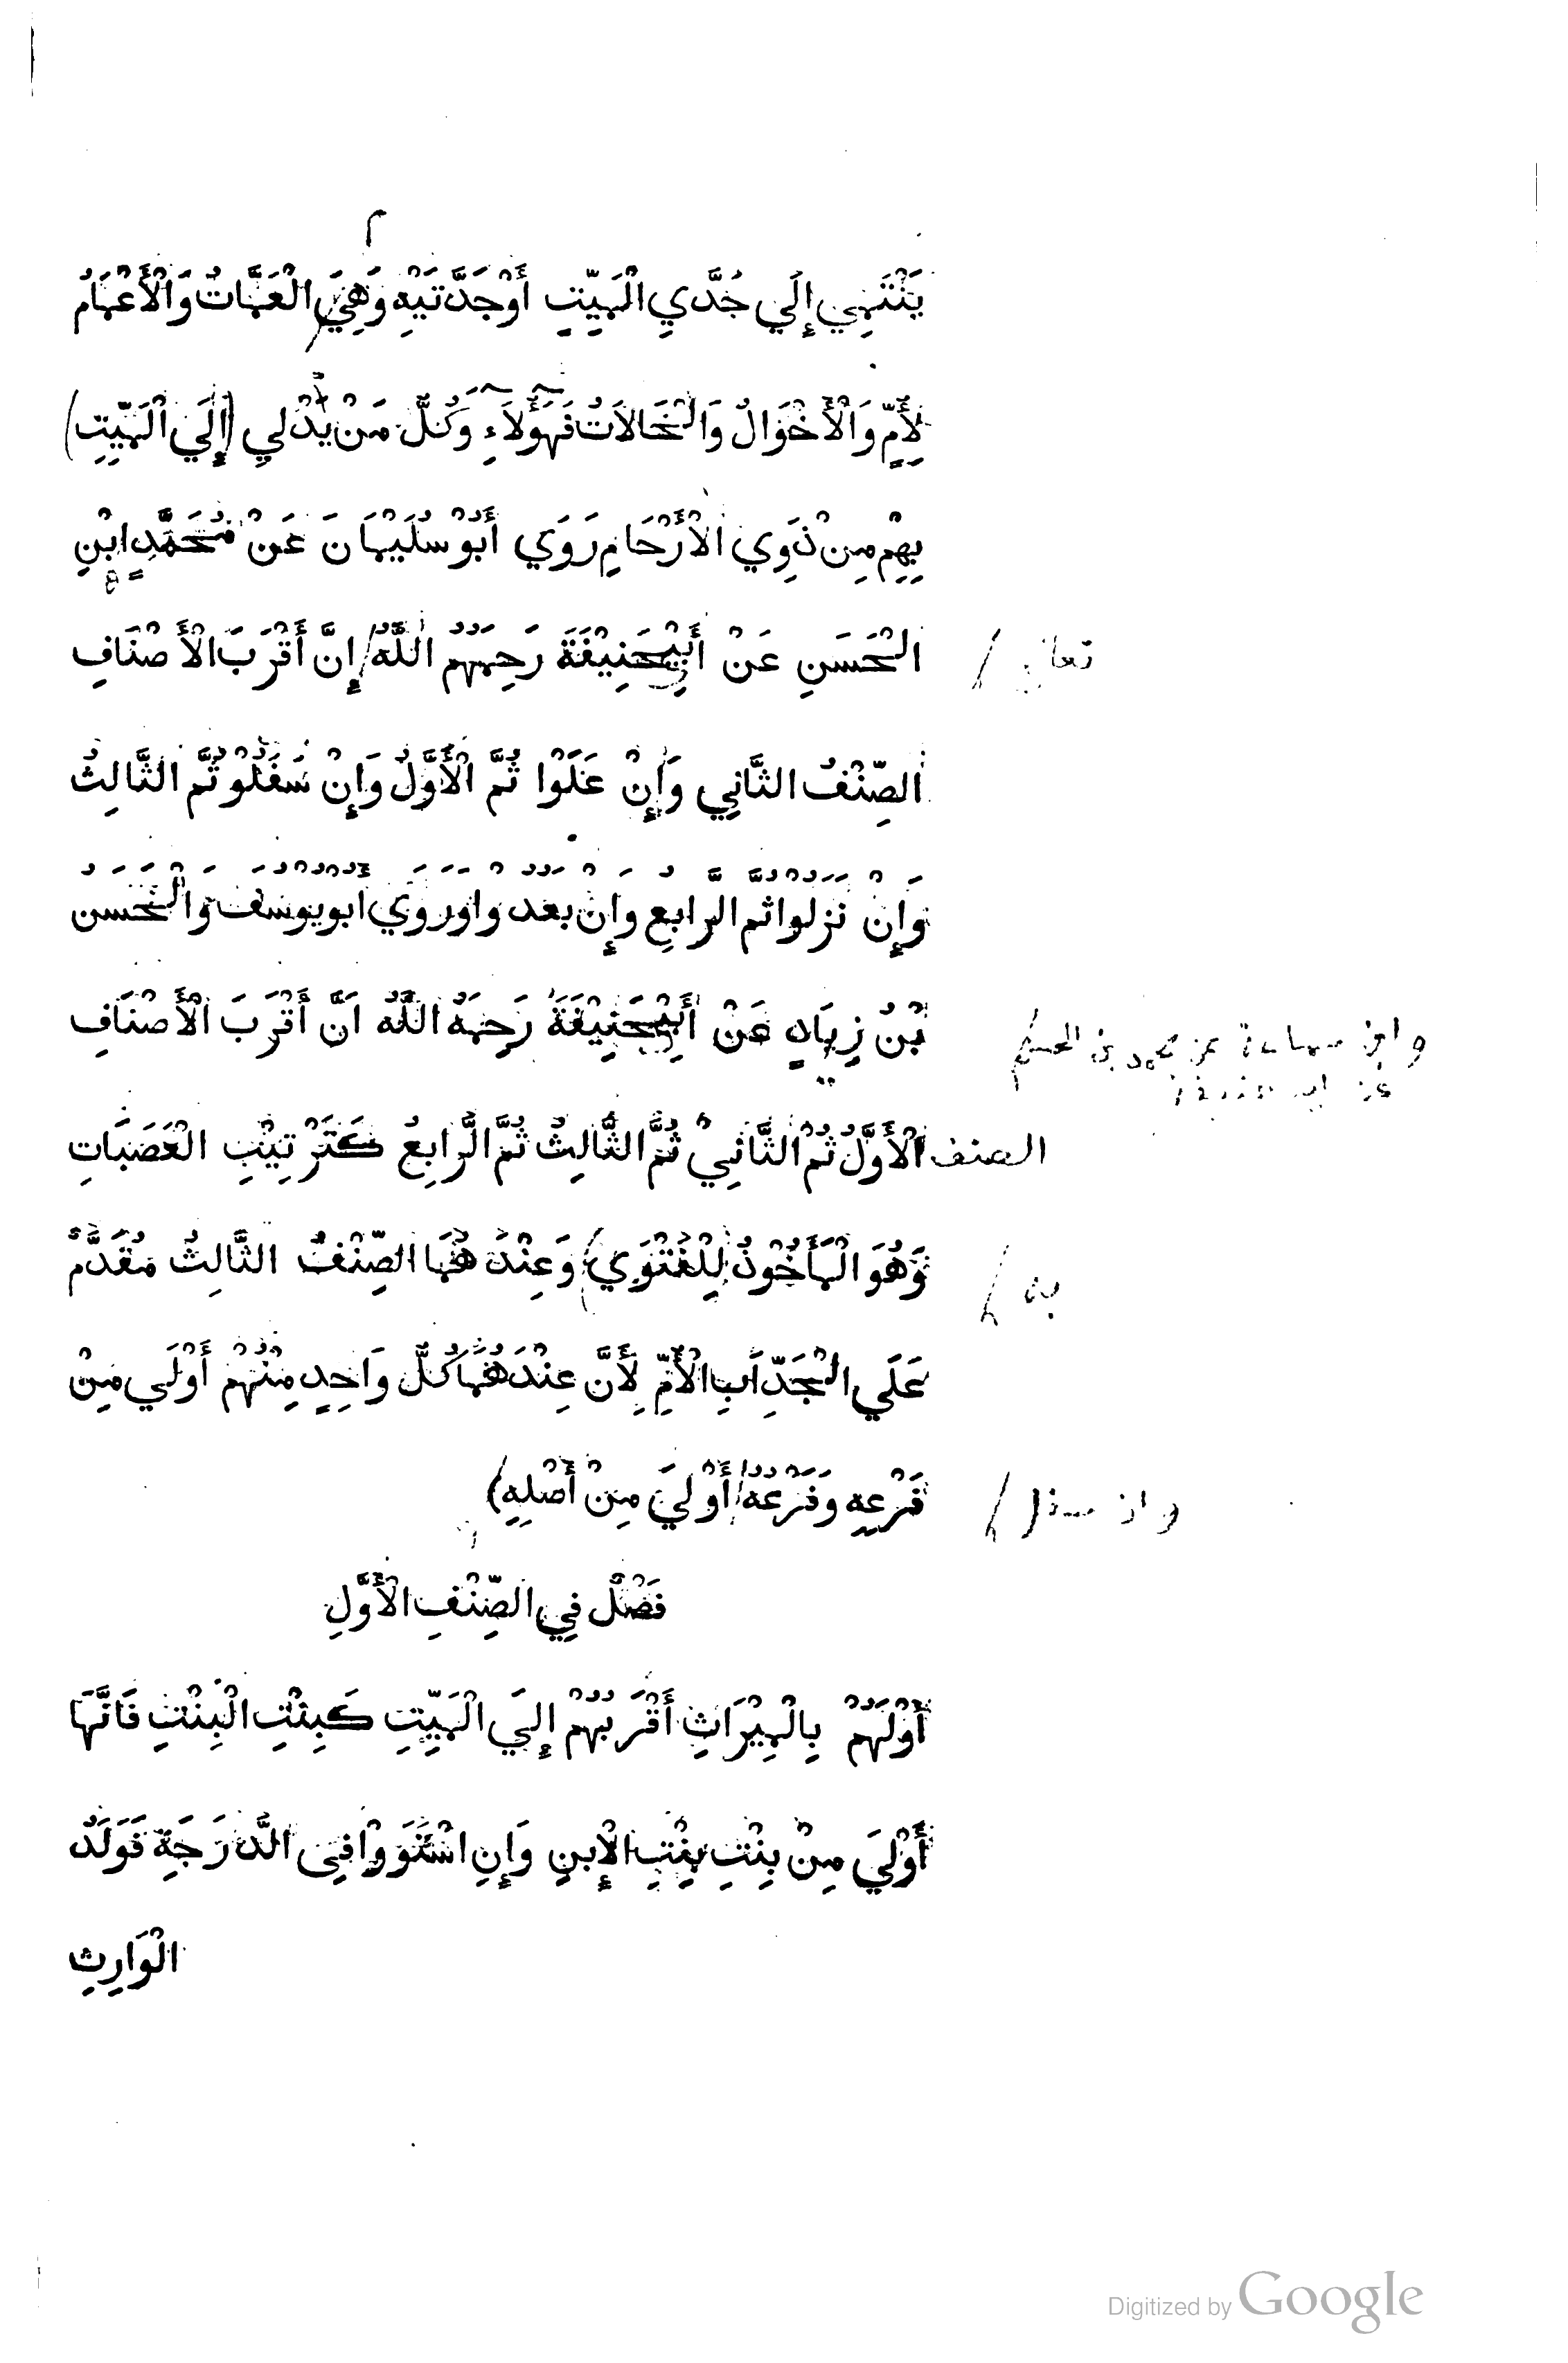 يَنْتَهِي إِلَي جَدَّيِ الْمَيِّتِ أَوْجَدَّتَيْهِ وَهِيَ الْعَمَّاتُ وَالْأَعْمَامُ
لِأُمٍّ وَالْأَخْوَالُ وَالْخَالَاتُ فَهَؤُلَاءِ وَكُلُّ مَنْ يُدْلِي (إِلَي الْمَيِّتِ)
بِهِمْ مِنْ ذَوِي الْأَرْحَامِ رَوَي أَبُوْ سُلَيْمَانَ عَنْ مُحَمَّدٍ ابْنِ
الْحَسَنِ عَنْ أَبِيْحَنِيْفَةَ رَحِمَهُمُ اللّٰهُ / إِنَّ أَقْرَبَ الْأَصْنَافِ
تعالي /
الصِّنْفُ الثَّانِي وَإِنْ عَلَوْا ثُمَّ الْأَوَّلُ وَإِنْ سَفَلُوْ ثُمَّ الثَّالِثُ
وَإِنْ نَزَلُوْا ثُمَّ الرَّابِعِ وَإِنْ بَعُدُوْا وَرَوَي اَبُوْيُوْسُفَ وَالْحَسَنُ
بْنُ زِيَادٍ عَنْ أَبِيْحَنِيْفَةَ رَحِمَهُ اللّٰهُ اَنَّ أَقْرَبَ الْأَصْنَافِ
وابن سماعة عن محمد بن الحسن /
عن ابي حنيفة
الصنف الْأَوَّلُ ثُمَّ الثَّانِيْ ثُمَّ الثَّالِثُ ثُمَّ الرَّابِعُ كَتَرْتِيْبِ الْعَصَبَاتِ
وَهُوَ الْمَأْخُوْذُ (لِلْفَتْوَي) وَعِنْدَهُمَا الصِّنْفُ الثَّالِثُ مُقَدَّمٌ
به /
عَلَي الْجَدِّ اَبِ الْأُمِّ لِأَنَّ عِنْدَهُمَا كُلُّ وَاحِدٍ مِنْهُمْ أَوْلَي مِنْ
فَرْعِهِ وَفَرْعُهُ / أَوْلَيَ مِنْ أَصْلِهِ)
وان سفل /
فَصْلٌ فِي الصِّنْفِ الْأَوَّلِ
أَوْلَهُمْ بِالْمِيْرَاثِ أَقْرَبُهُمْ إِلَيَ الْمَيِّتِ كَبِنْتِ الْبِنْتِ فَانَّهَا
أَوْلَيَ مِنْ بِنْتِ بِنْتِ الْإِبنِ وَإِنِ اسْتَوَوْا فِي الدَّرَجَةِ فَوَلَدُ
الْوَارِثِ